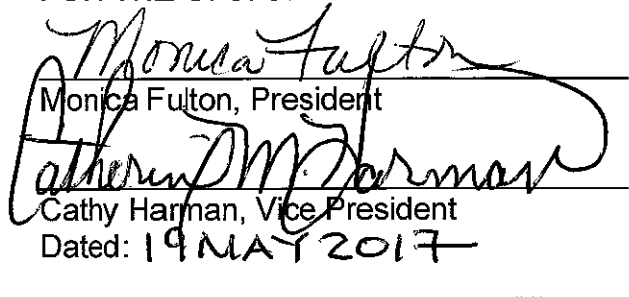 Monica Fulton
Monica Fulton, President
Catherine M. Harman
Cathy Harman, Vice President
Dated: 19 MAY 2017